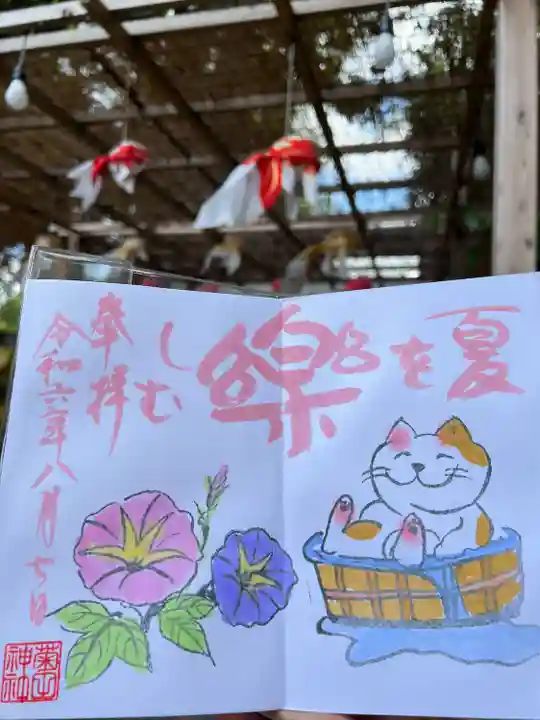 夏を
楽
しむ
奉拝
令和六年八月七日
神社